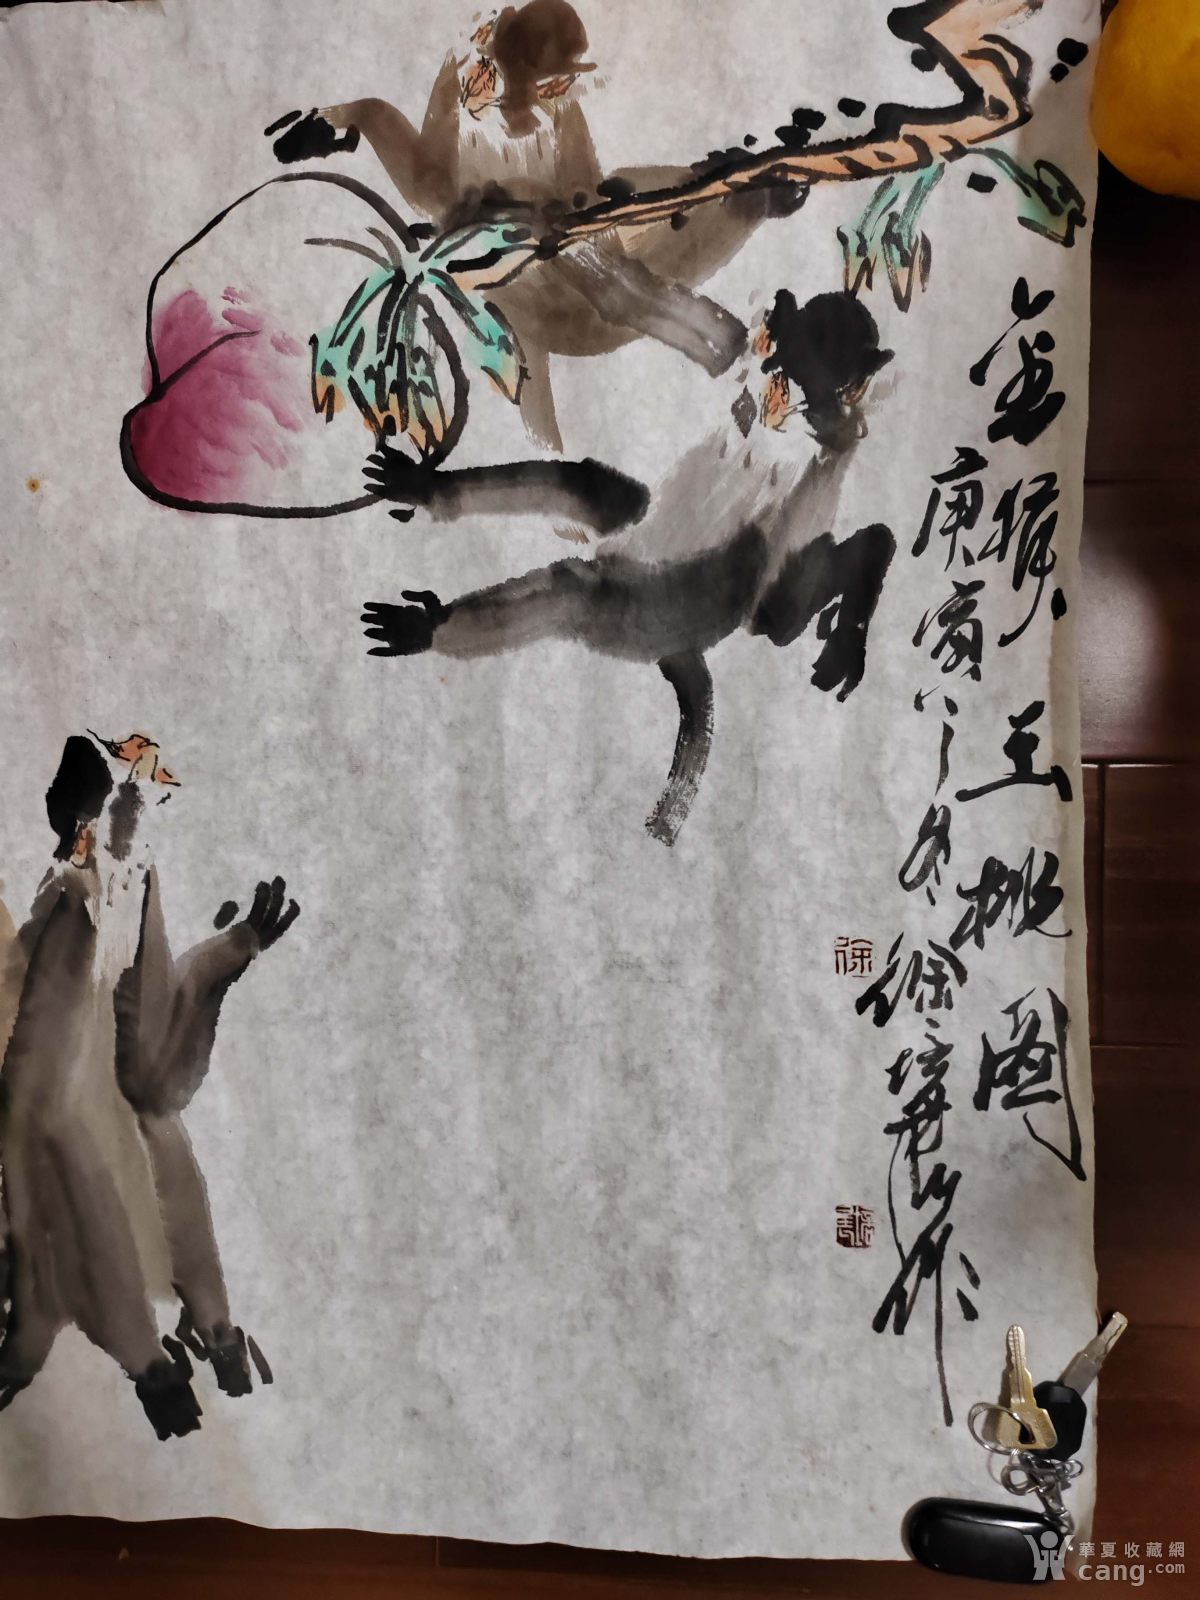 金猴玉桃图
庚寅之冬徐培晨作
徐
華夏收藏網
cang.com